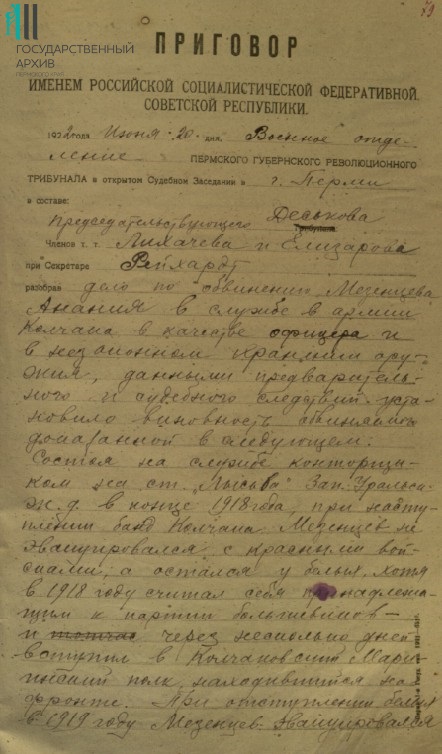 79
ГОСУДАРСТВЕННЫЙ
АРХИВ
ПЕРМСКОГО КРАЯ
ПРИГОВОР
ИМЕНЕМ РОССИЙСКОЙ СОЦИАЛИСТИЧЕСКОЙ ФЕДЕРАТИВНОЙ
СОВЕТСКОЙ РЕСПУБЛИКИ.
192 года Июня 20 дня. Военное отде-
ление ПЕРМСКОГО ГУБЕРНСКОГО РЕВОЛЮЦИОННОГО
ТРИБУНАЛА в открытом Судебном Заседании в г. Перми
в составе:
Председательствующего Деськова
Членов т. т. Лихачева и Елизарова
при Секретаре Рейхардт
разобрав дело по обвинении Мезенцева
Анания в службе в армии
Колчака в качестве офицера и
в незаконном хранении ору-
жия, данными предваритель-
ного и судебного следствий уста-
новило виновность обвиняемого
доказанной в следующем:
Состоя на службе конторщи-
ком на ст. "Лысьва" Зап. Уральск.
ж. д. в конце 1918 года, при насту-
плении банд Колчака Мезенцев не
эвакуировался с красными вой-
сками, а остался у белых, хотя
в 1918 году считал себя принадлежа-
щим к партии большевиков —
и через несколько дней
вступил в Колчаковский Мари-
инский полк, находившийся на
фронте. При отступлении белых
в 1919 году Мезенцев эвакуировался